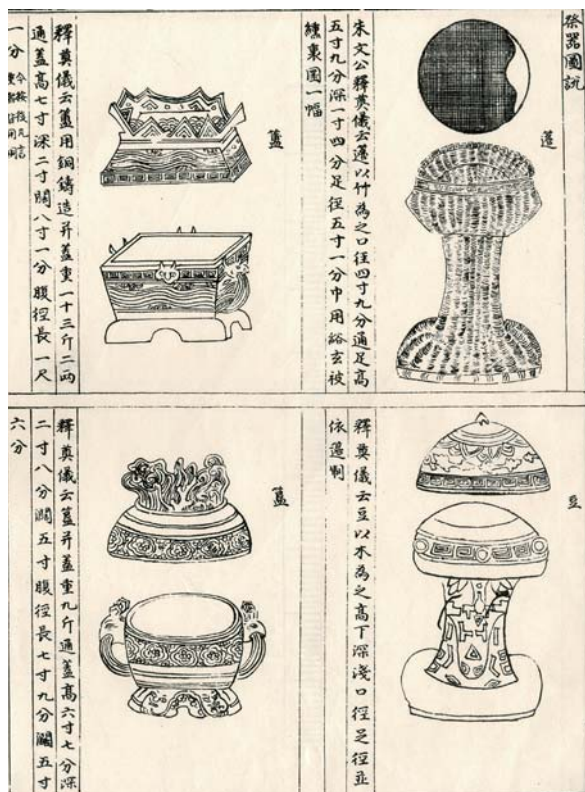 祭器圖說
籩
朱文公釋奠儀云籩以竹為之口徑四寸九分通足高
五寸九分深一寸四分足徑五寸一分巾用綌玄被
纁裏圜一幅
簠
釋奠儀云簠用銅鑄造并蓋重一十三斤二兩
通蓋高七寸深二寸闊八寸一分腹徑長一尺
一分
今按後凡言
豆
釋奠儀云豆以木為之高下深淺口徑足徑並
依籩制
簋
釋奠儀云簋并蓋重九斤通蓋高六寸七分深
二寸八分濶五寸腹徑長七寸九分濶五寸
六分